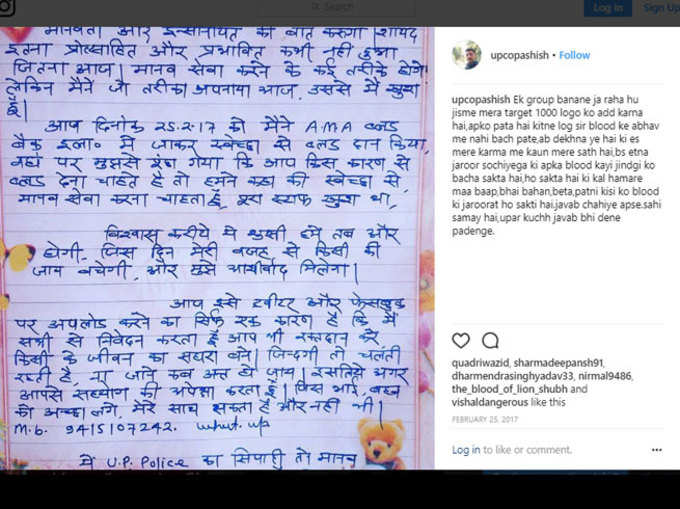 Search
Log In
Sign Up
मानवता और इन्सानियत की बात करूंगा | शायद
इतना प्रोत्साहित और प्रभावित कभी नहीं हुआ
जितना आज | मानव सेवा करने के कई तरीके होंगे
लेकिन मैने जो तरीका अपनाया आज, उससे मैं खुश
हूँ |
आप दिनांक 25.2.17 को मैंने A.M.A ब्लड
बैंक इला० में जाकर स्वेच्छा से ब्लड दान किया,
वहां पर मुझसे पूछा गया कि आप किस कारण से
ब्लड देना चाहते है तो हमने कहा की स्वेच्छा से,
मानव सेवा करना चाहता हूँ, पूरा स्टाफ खुश था,
विश्वास करीये ये खुशी हमें तब और
होगी, जिस दिन मेरी वजह से किसी की
जान बचेगी, और मुझे आशीर्वाद मिलेगा |
आप इसे ट्वीटर और फेसबुक
पर अपलोड करने का सिर्फ एक कारण है कि मैं
सभी से निवेदन करता हूँ आप भी रक्तदान करें
किसी के जीवन का सहारा बने | जिन्दगी तो चलती
रहती है, ना जाने कब अन्त हो जाय | इसलिये अगर
आपसे सहयोग की अपेक्षा करता हूँ | जिस भाई, बहन
को अच्छा लगे, मेरे साथ सकता है और नहीं भी |
M.b. 9415107242.
में U.P. Police का सिपाही तो मानव
upcopashish • Follow
upcopashish Ek group banane ja raha hu
jisme mera target 1000 logo ko add karna
hai,apko pata hai kitne log sir blood ke abhav
me nahi bach pate,ab dekhna ye hai ki es
mere karma me kaun mere sath hai,bs etna
jaroor sochiyega ki apka blood kayi jindgi ko
bacha sakta hai,ho sakta hai ki kal hamare
maa baap,bhai bahan,beta,patni kisi ko blood
ki jaroorat ho sakti hai.javab chahiye apse.sahi
samay hai,upar kuchh javab bhi dene
padenge.
quadriwazid, sharmadeepansh91,
dharmendrasinghyadav33, nirmal9486,
the_blood_of_lion_shubh and
vishaldangerous like this
FEBRUARY 25, 2017
Log in to like or comment.